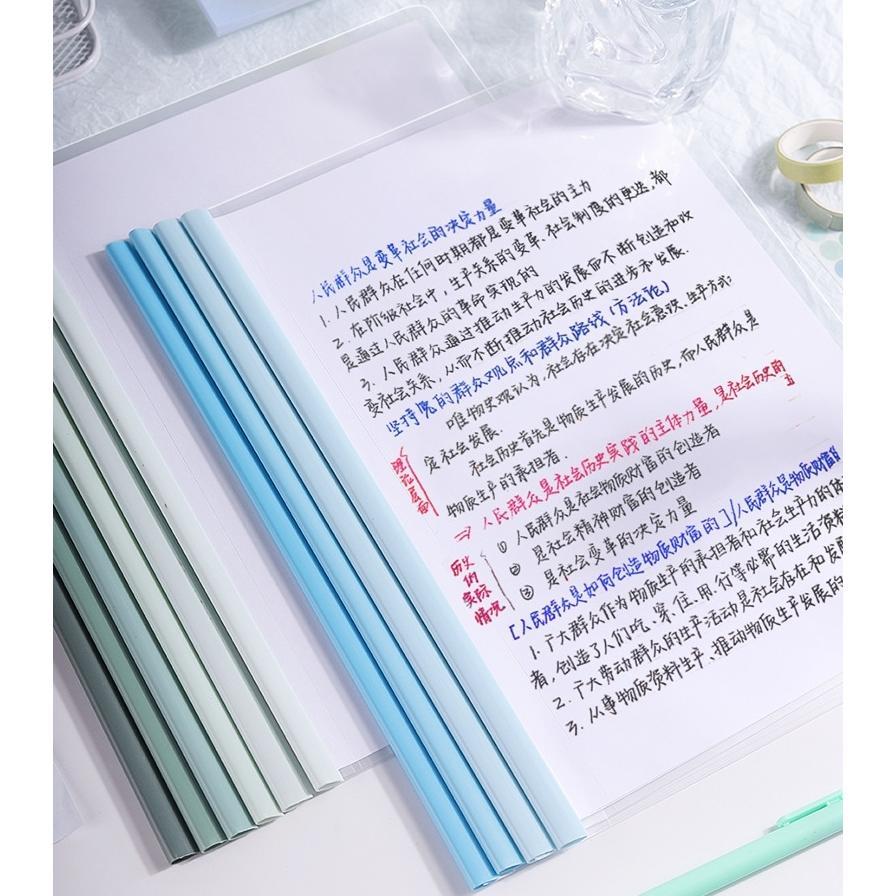 人民群众是变革社会的决定力量
1. 人民群众在任何时期都是变革社会的主力
2. 在阶级社会中,生产关系的变革.社会制度的更迭,都
是通过人民群众的革命实现的
3. 人民群众通过推动生产力的发展而不断创造和改
变社会关系,从而不断推动社会历史的进步和发展.
坚持党的群众观点和群众路线(方法论)
唯物史观认为,社会存在决定社会意识.生产方式
定社会发展.
社会历史首先是物质生产发展的历史,而人民群众是
物质生产的承担者.
理论层面
⇒人民群众是社会历史实践的主体力量,是社会历史的
① 人民群众是社会物质财富的创造者
② 是社会精神财富的创造者
③ 是社会变革的决定力量
历史的实际情况
[人民群众是如何创造物质财富的]/人民群众是物质财富的
1. 广大群众作为物质生产的承担者和社会生产力的体
者,创造了人们吃、穿、住、用、行等必需的生活资料
2. 广大劳动群众的生产活动是社会存在和发展
3. 从事物质资料生产、推动物质生产发展的